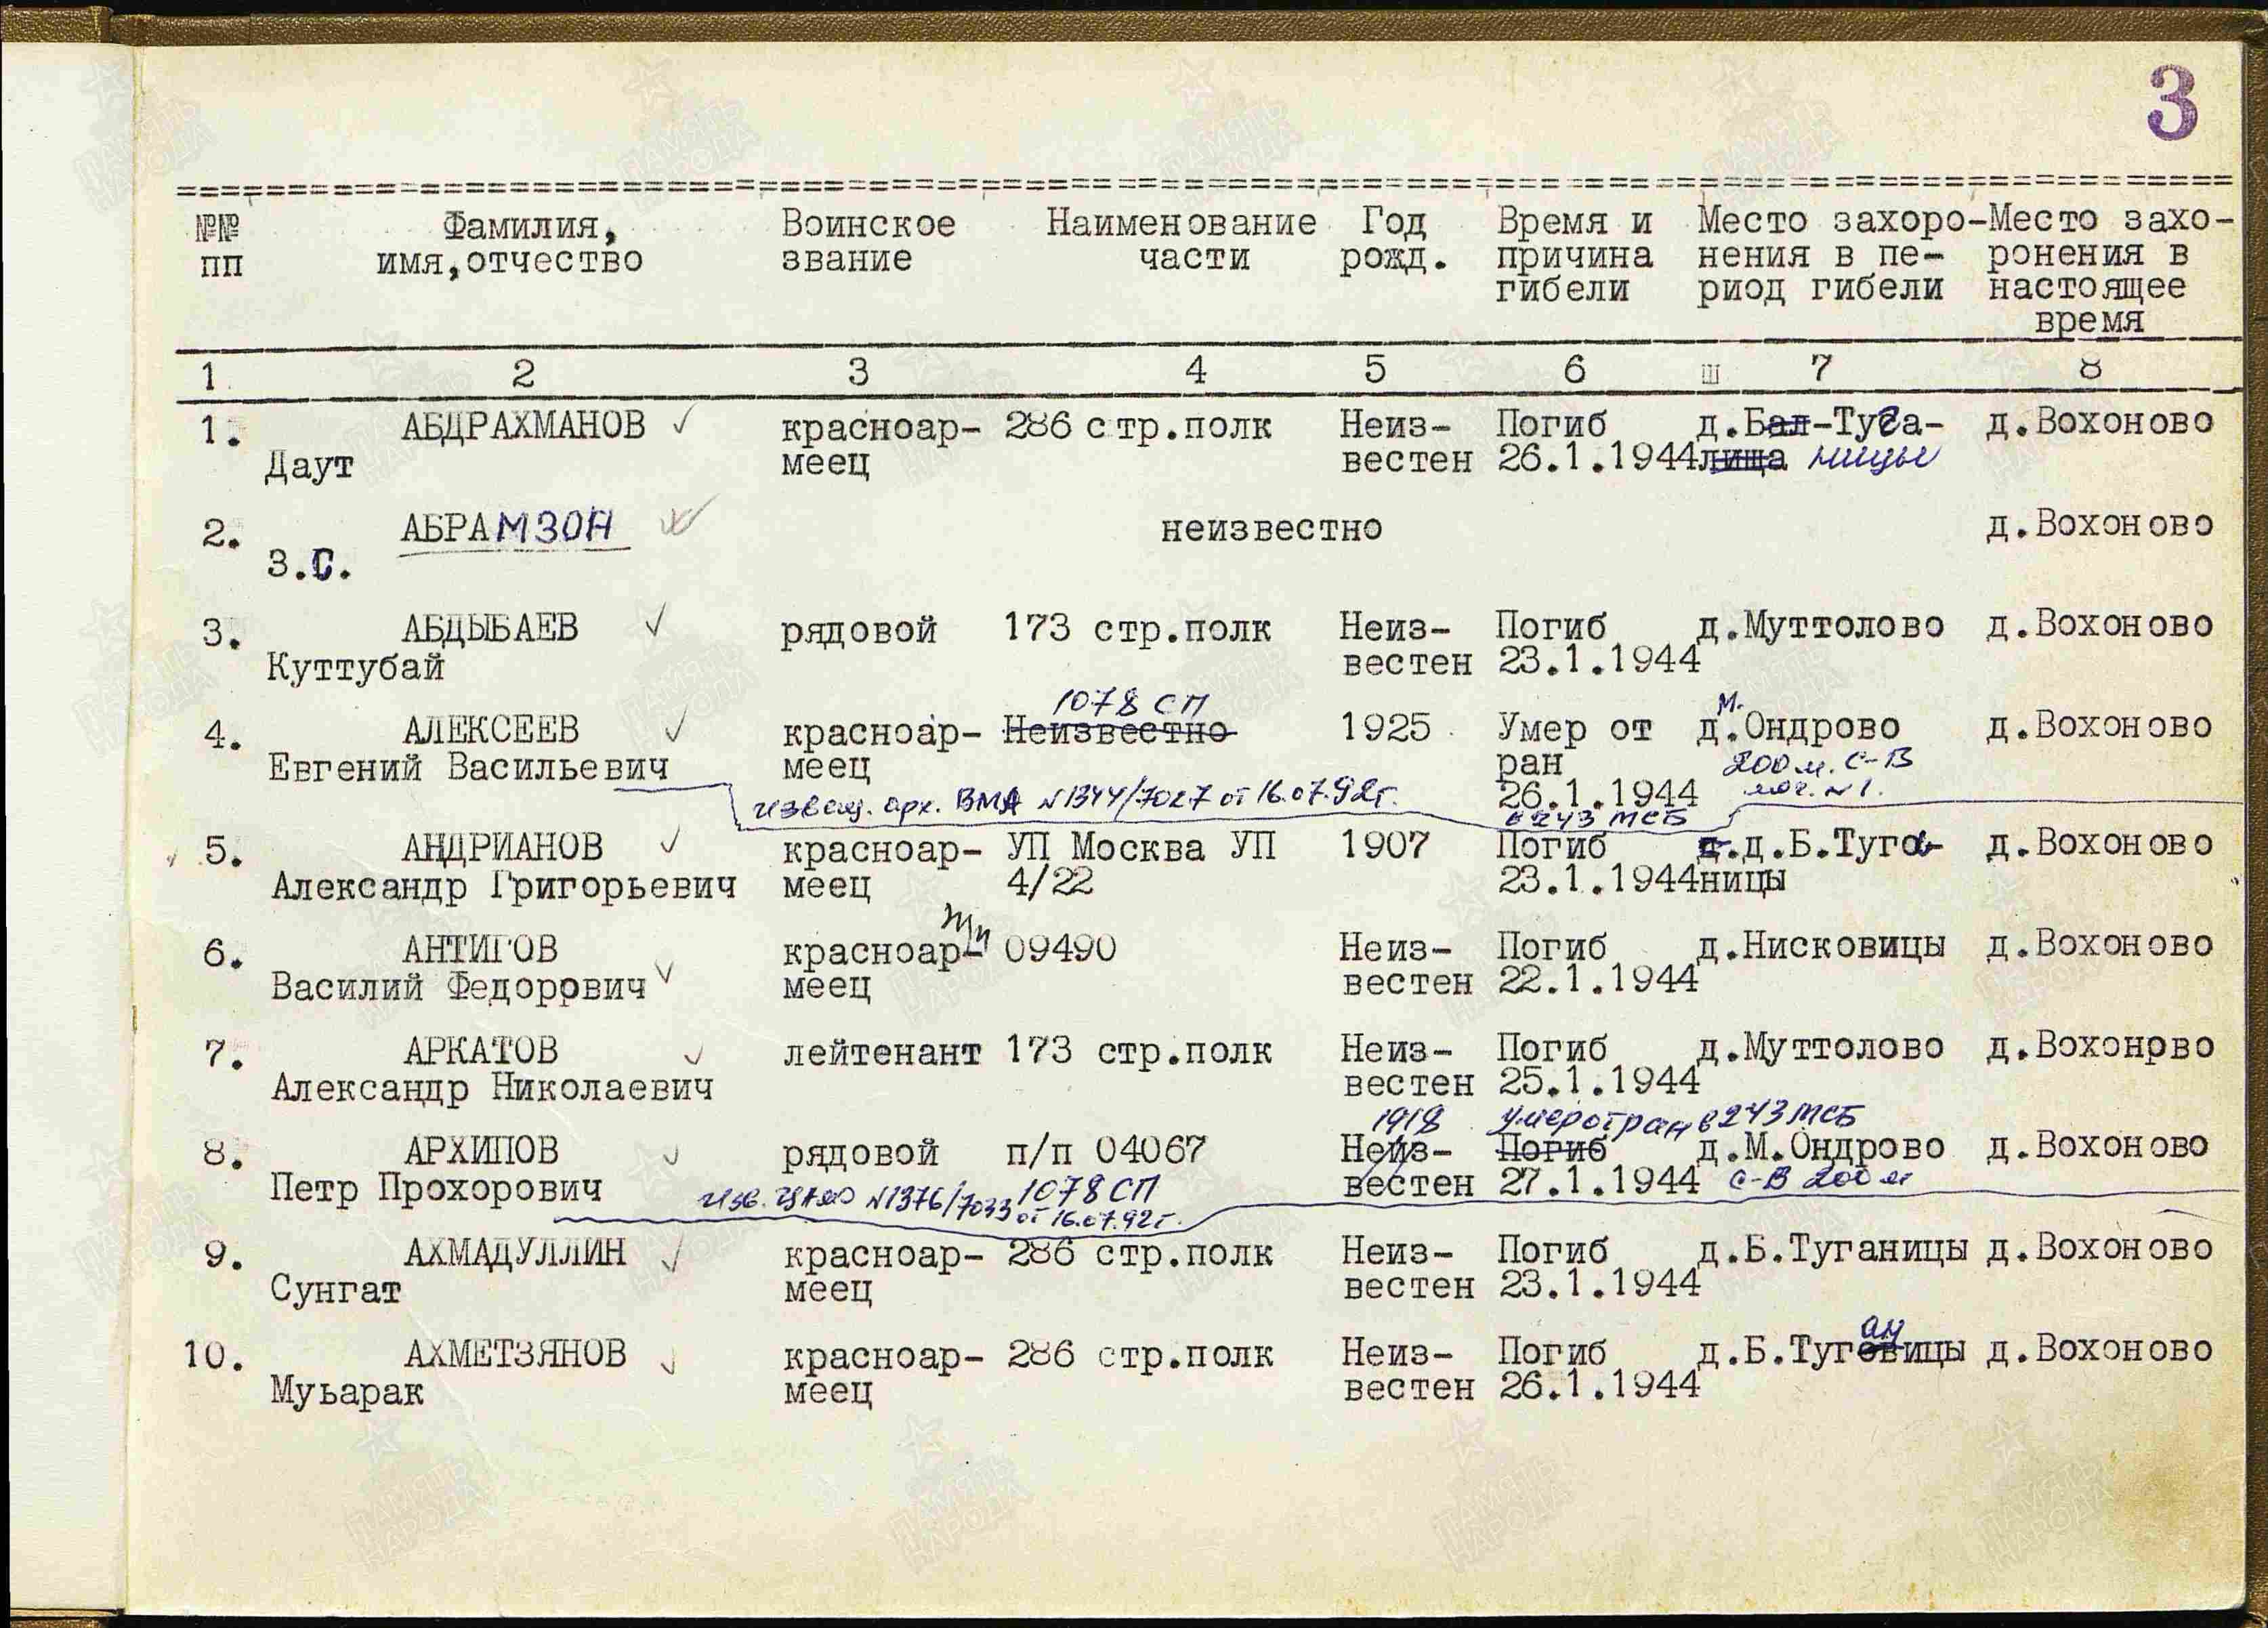 3
№№ Фамилия, Воинское Наименование Год Время и Место захоро- Место захо-
пп имя,отчество звание части рожд. причина нения в пе- ронения в
гибели риод гибели настоящее
время
1 2 3 4 5 6 ш 7 8
1. АБДРАХМАНОВ красноар- 286 стр.полк Неиз- Погиб д.Бал-Туга- д.Вохоново
Даут меец вестен 26.1.1944 лища ницы
2. АБРАМЗОН неизвестно д.Вохоново
З.С.
3. АБДЫБАЕВ рядовой 173 стр.полк Неиз- Погиб д.Муттолово д.Вохоново
Куттубай вестен 23.1.1944
1078 СП м.
4. АЛЕКСЕЕВ красноар- Неизвестно 1925 Умер от д.Ондрово д.Вохоново
Евгений Васильевич меец ран 200 м. С-В
извещ. арх. ВМА №1344/7027 от 16.07.92г. 26.1.1944 мог. №1.
в 243 МСБ
5. АНДРИАНОВ красноар- УП Москва УП 1907 Погиб д.д.Б.Туга- д.Вохоново
Александр Григорьевич меец 4/22 23.1.1944 ницы
6. АНТИГОВ красноар- 09490 Неиз- Погиб д.Нисковицы д.Вохоново
Василий Федорович меец вестен 22.1.1944
7. АРКАТОВ лейтенант 173 стр.полк Неиз- Погиб д.Муттолово д.Вохоново
Александр Николаевич вестен 25.1.1944
1918 умер от ран в 243 МСБ
8. АРХИПОВ рядовой п/п 04067 Неиз- Погиб д.М.Ондрово д.Вохоново
Петр Прохорович 1078 СП вестен 27.1.1944 С-В 200 м
изв. ЦАМО №1376/7033 от 16.07.92г.
9. АХМАДУЛЛИН красноар- 286 стр.полк Неиз- Погиб д.Б.Туганицы д.Вохоново
Сунгат меец вестен 23.1.1944
ан
10. АХМЕТЗЯНОВ красноар- 286 стр.полк Неиз- Погиб д.Б.Туговицы д.Вохоново
Муьарак меец вестен 26.1.1944